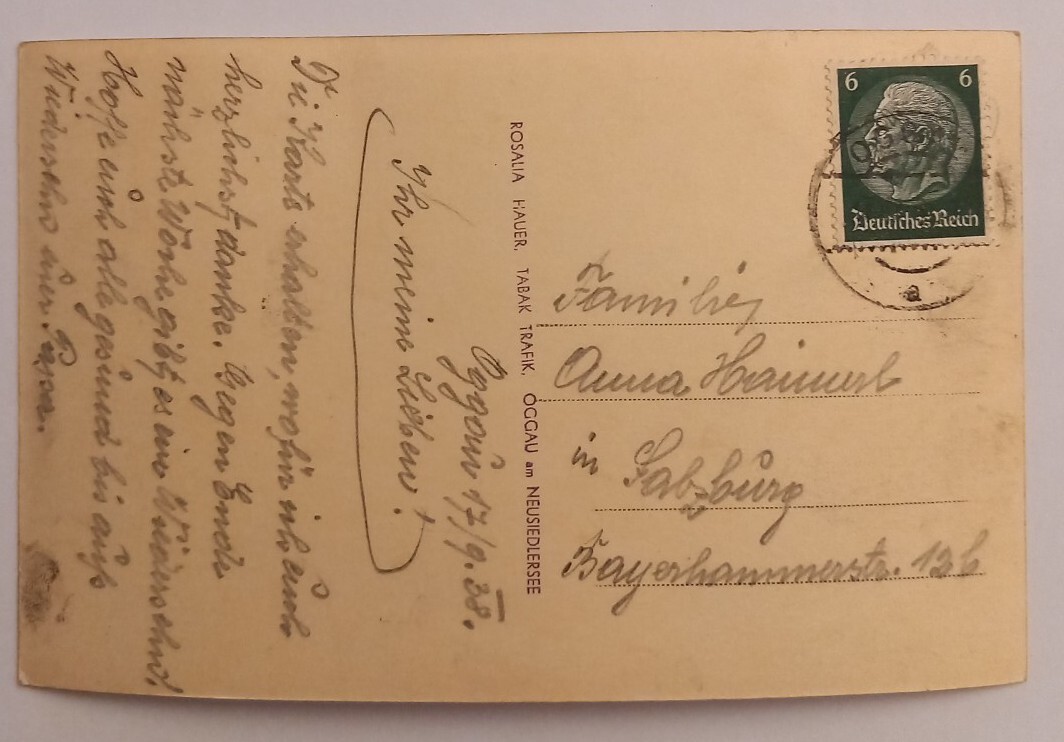 Oggau 17/9. 38.
Ihr meine Lieben!
Die Karte erhalten, wofür ich Euch
herzlichst danke. Gegen Ende
nächste Woche gibt es ein Wiedersehn!
Hoffe euch alle gesund bis aufs
Wiedersehn euer Papa.
ROSALIA HAUER, TABAK TRAFIK, OGGAU am NEUSIEDLERSEE
6 6
Deutsches Reich
a
Familie
Anna Haimerl
in Salzburg
Bayerhammerstr. 12b